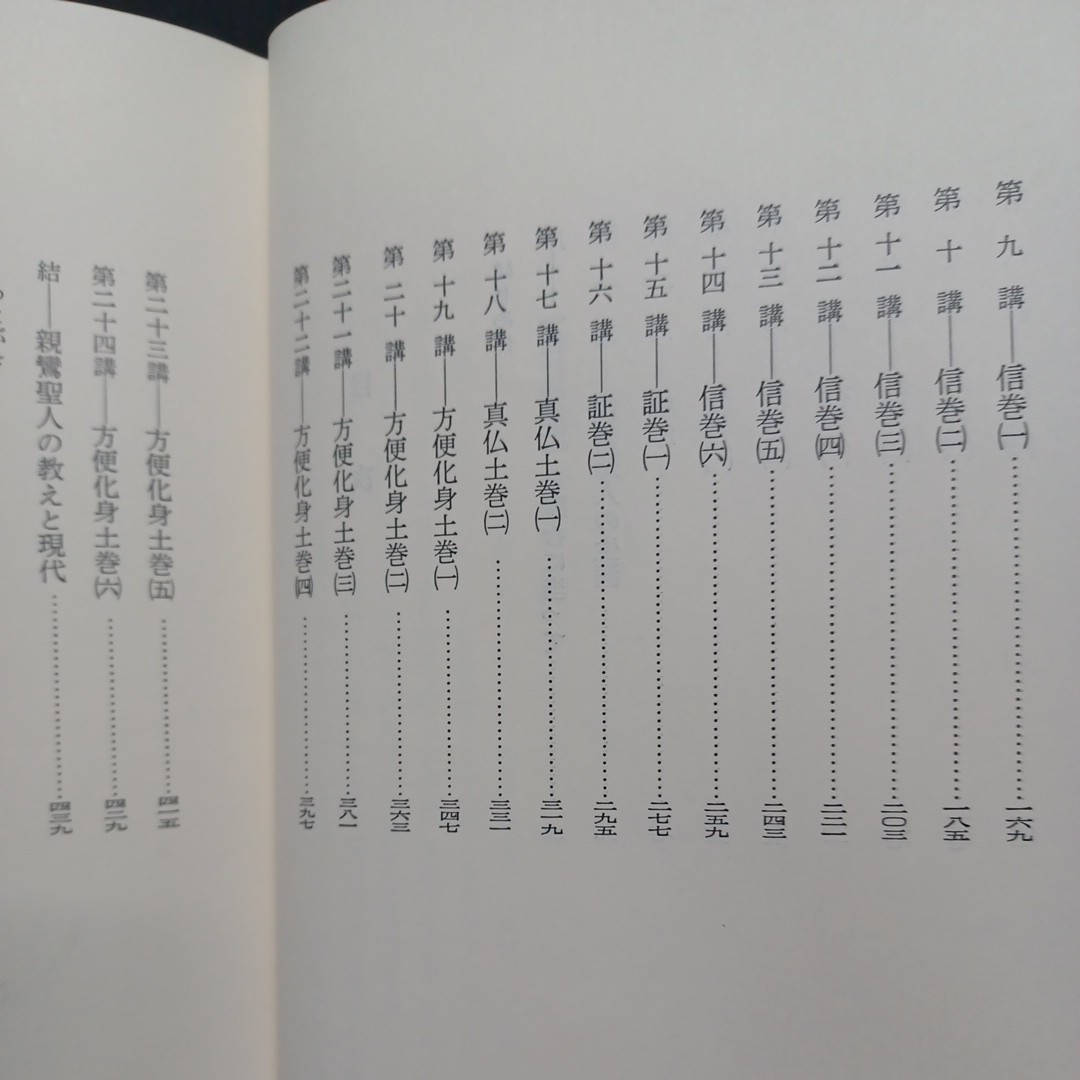 第九講――信巻㈠……………………一六九
第十講――信巻㈡……………………一八五
第十一講――信巻㈢……………………二〇三
第十二講――信巻㈣……………………二二一
第十三講――信巻㈤……………………二四三
第十四講――信巻㈥……………………二五九
第十五講――証巻㈠……………………二七七
第十六講――証巻㈡……………………二九五
第十七講――真仏土巻㈠……………………三一九
第十八講――真仏土巻㈡……………………三三一
第十九講――方便化身土巻㈠……………………三四七
第二十講――方便化身土巻㈡……………………三六三
第二十一講――方便化身土巻㈢……………………三八一
第二十二講――方便化身土巻㈣……………………三九七
第二十三講――方便化身土巻㈤……………………四一五
第二十四講――方便化身土巻㈥……………………四二九
結――親鸞聖人の教えと現代……………………四三九